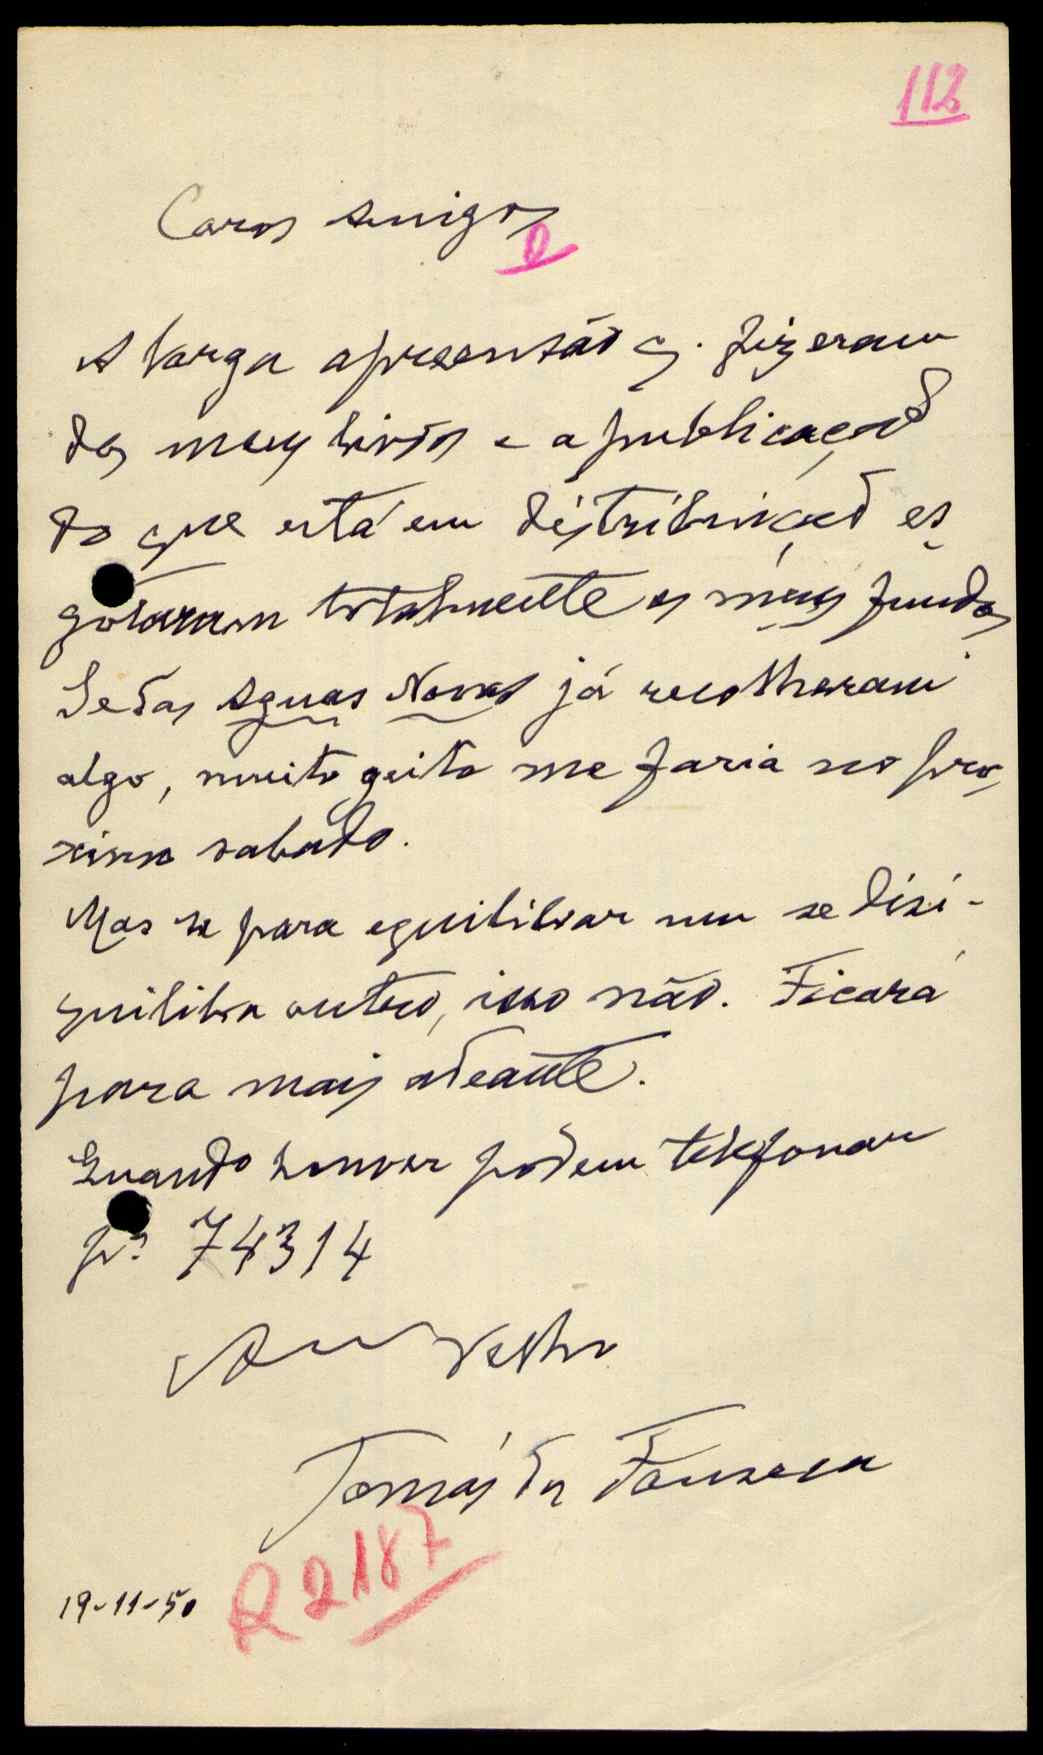 112
Caros Amigos
A larga apreensão q. fizeram
dos meus livros e a publicação
do que está em distribuição es
gotaram totalmente os meus fundos
Se das Aguas Novas já recolheram
algo, muito geito me faria no pro
ximo sabado.
Mas se para equilibrar um se dizi-
quilibra outro, isso não. Ficará
para mais adeante.
Quando houver podem telefonar
pª 74314
Velho
Tomás da Fonseca
R 2187
19-11-50